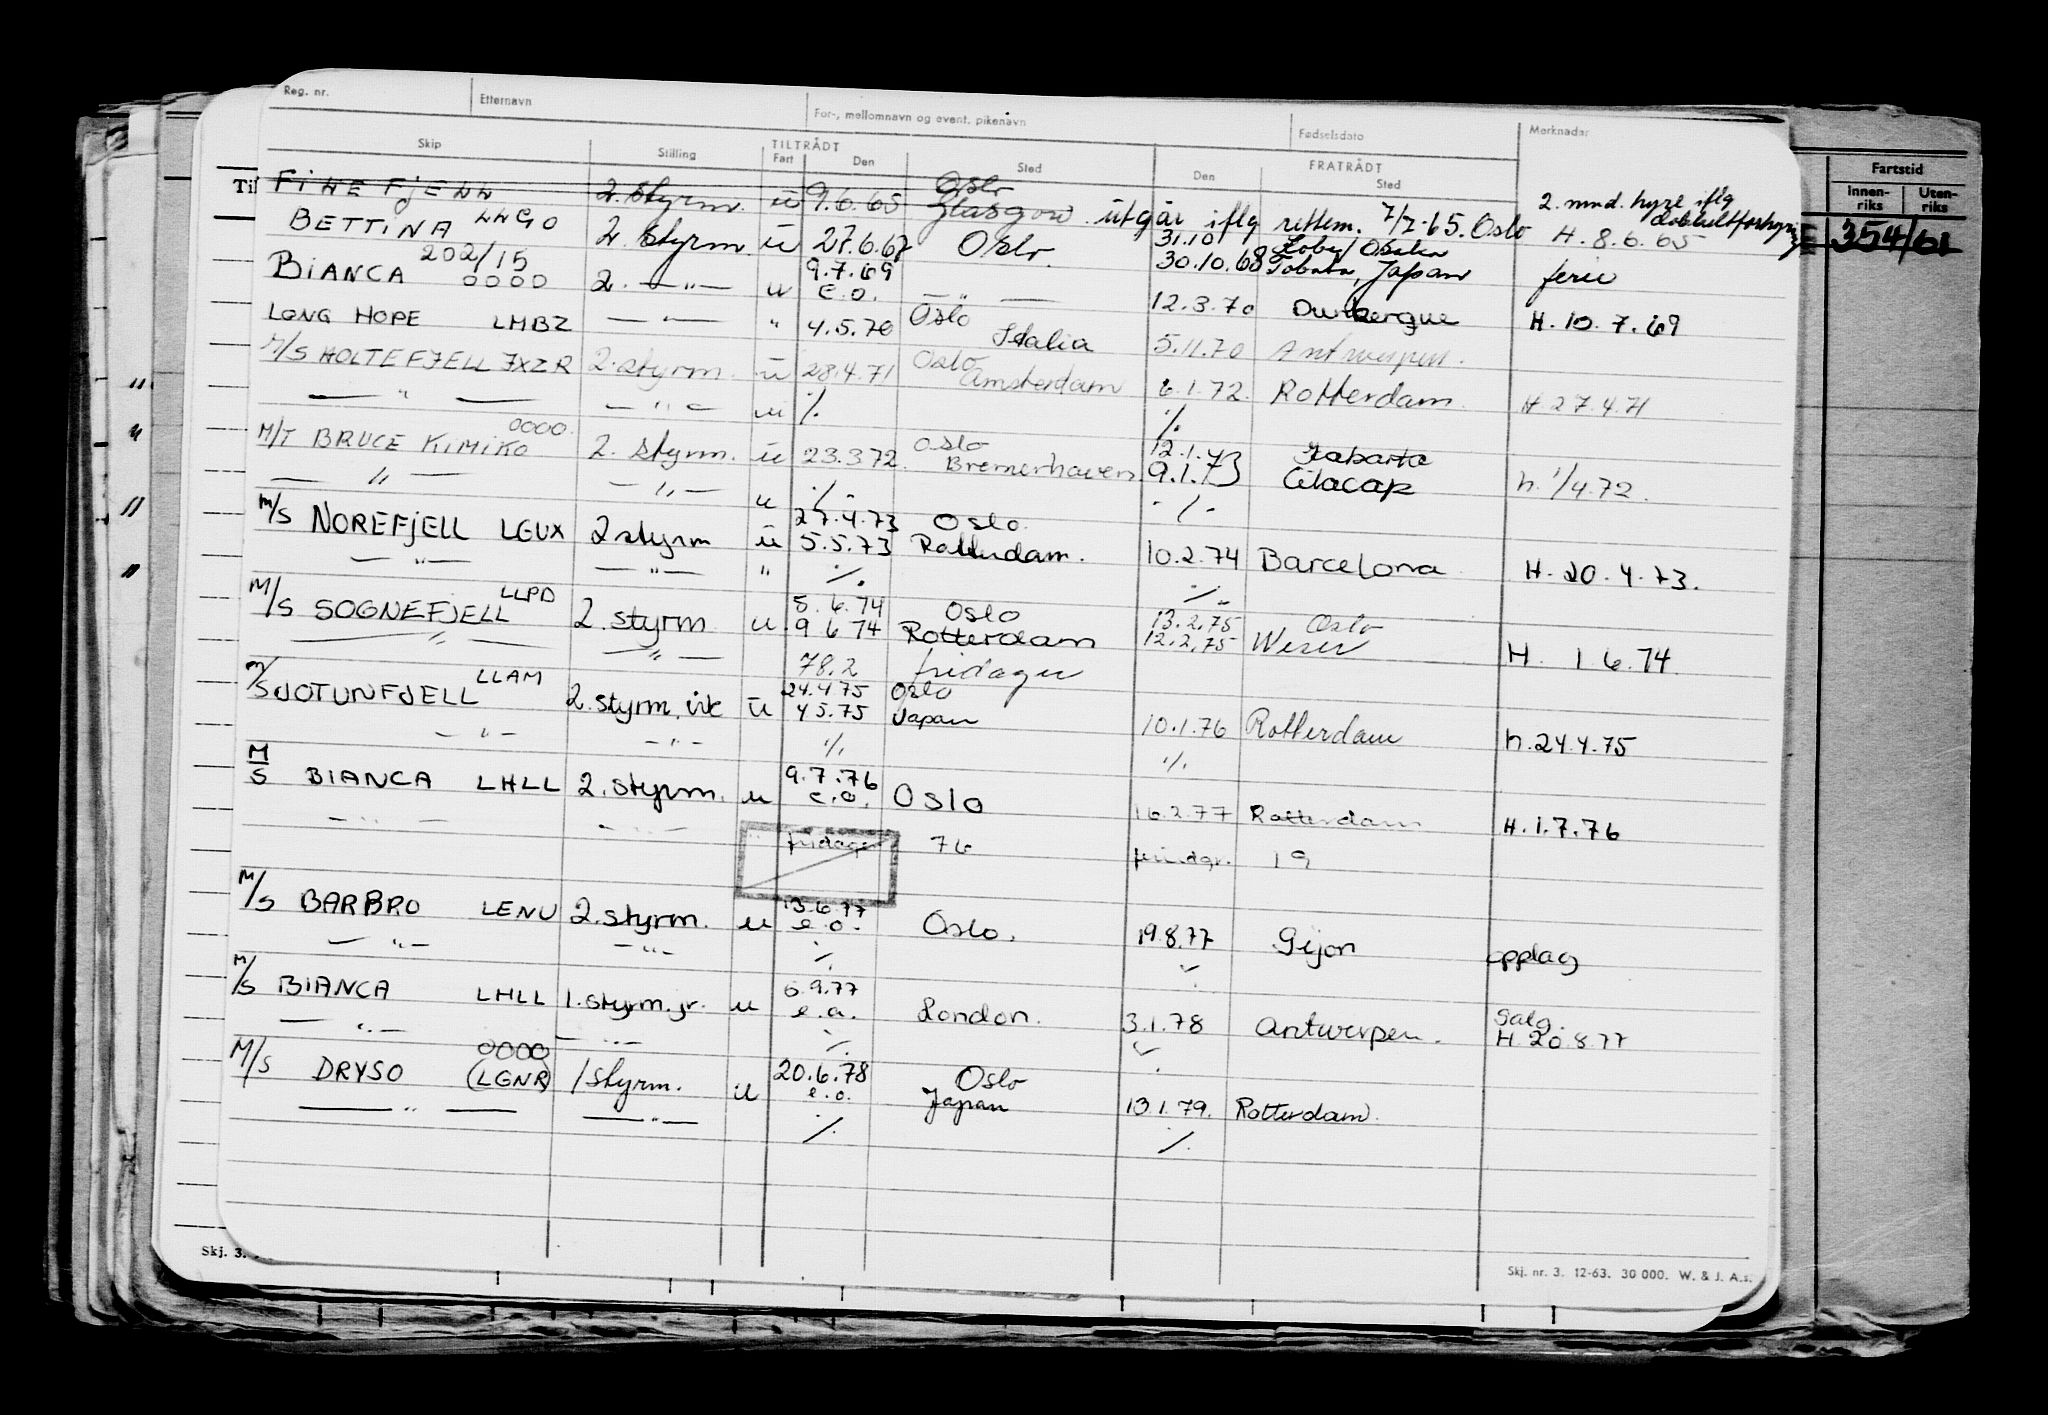 Reg. nr. Etternavn For-, mellomnavn og event. pikenavn Fødselsdato Merknader
Skip Stilling TILTRÅDT Fart Den Sted Den FRATRÅDT Sted
Fartstid
Innen-riks Uten-riks
354/61
Til
FINEFJELL 2. styrm. ū 9.6.65 Oslo Glasgow utgår iflg rettem. 7/7-65. Oslo 2. mnd. hyre iflg dobbeltforhyring H. 8.6.65
BETTINA LHGO 2. styrm ū 27.6.67 Oslo. 31.10 30.10.68 Kobe/Osaka Tobata, Japan ferie
BIANCA 202/15 0000 2. —"— u 9.7.69 e.o. —"— 12.3.70 Dunkerque H. 10.7.69
LONG HOPE LMBZ —"— " 4.5.70 Oslo Italia 5.11.70 Antwerpen.
M/S HOLTEFJELL JXZR 2. styrm. ū 28.4.71 Oslo Amsterdam 6.1.72. Rotterdam H. 27.4.71
—"— —"— u ./. ./.
M/T BRUCE KIMIKO 0000 2. styrm. ū 23.3.72. Oslo Bremerhaven 12.1.73 9.1.73 Cilacap h. 1/4.72.
—"— —"— u ./. ./.
M/S NOREFJELL LGUX 2 styrm ū 27.4.73 5.5.73 Oslo. Rotterdam. 10.2.74 Barcelona H. 20.4.73.
—"— —"— " ./. ./.
M/S SOGNEFJELL LLPD 2. styrm u 5.6.74 9 6 74 Oslo Rotterdam 13.2.75 12.2.75 Oslo Weser H. 1 6.74
—"— —"— 78.2 fridager
M/S JOTUNFJELL LLAM 2. styrm. ū 24.4.75 4 5.75 Oslo Japan 10.1.76 Rotterdam h. 24.4.75
—"— —"— ./. ./.
M/S BIANCA LHLL 2. styrm. u 9.7.76 e.o. Oslo 16.2.77 Rotterdam H. 1.7.76
—"— —"— fridager 76 fridgr. 19
M/S BARBRO LENU 2. styrm. u 13.6.77 e.o. Oslo. 19.8.77 Gijon opplag
—"— —"— ./. ./.
M/S BIANCA LHLL 1. styrm. jr. u 6.9.77 e.a. London. 3.1.78 Antwerpen. Salg. H. 20.8.77
—"— —"— ./. ./.
M/S DRYSO 0000 (LGNR) 1 styrm. u 20.6.78 e.o. Oslo Japan 13.1.79. Rotterdam.
—"— —"— ./. ./.
Skj. 3.
Skj. nr. 3. 12-63. 30 000. W. & J. A.s.